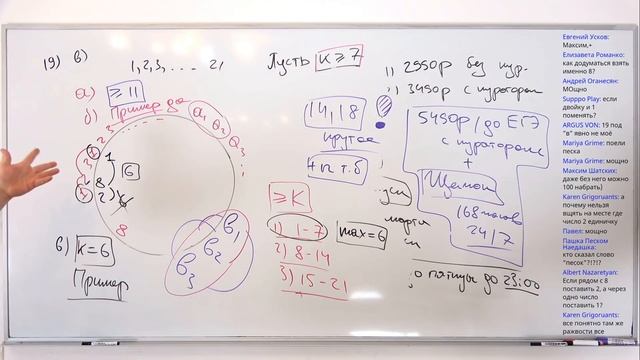 19) в)
1, 2, 3, .... 21
Пусть K ≥ 7
а) ≥ 11
б) Пример да
a₁ a₂ a₃
1
6
8
2
8
в) K = 6
Пример
в₁
в₂
в₃
14, 18
крутая
≥ K
1) 1 - 7
2) 8 - 14
3) 15 - 21
max = 6
1) 2950р без кур.
2) 3450р с куратором
5450р / до ЕГЭ
с куратором
+
Щелчок
168 часов
24/7
о пятницы до 23:00
Евгений Усков:
Максим,+
Елизавета Романко:
как додуматься взять
именно 8?
Андрей Оганесян:
МОщно
Supppo Play: если
двойку и 1
поменять?
ARGUS VON: 19 под
"в" явно не моё
Mariya Grime: поели
песка
Mariya Grime: мощно
Максим Шатских:
даже без него можно
100 набрать)
Karen Grigoruants: а
почему нельзя
вщять на месте где
число 2 единичку
Павел: мощно
Пашка Песком
Наедашка:
кто сказал слово
"песок"?!?!?
Albert Nazaretyan:
Если рядом с 8
поставить 2, а через
одно число
поставить 1?
Karen Grigoruants:
все понятно там же
ражвости все